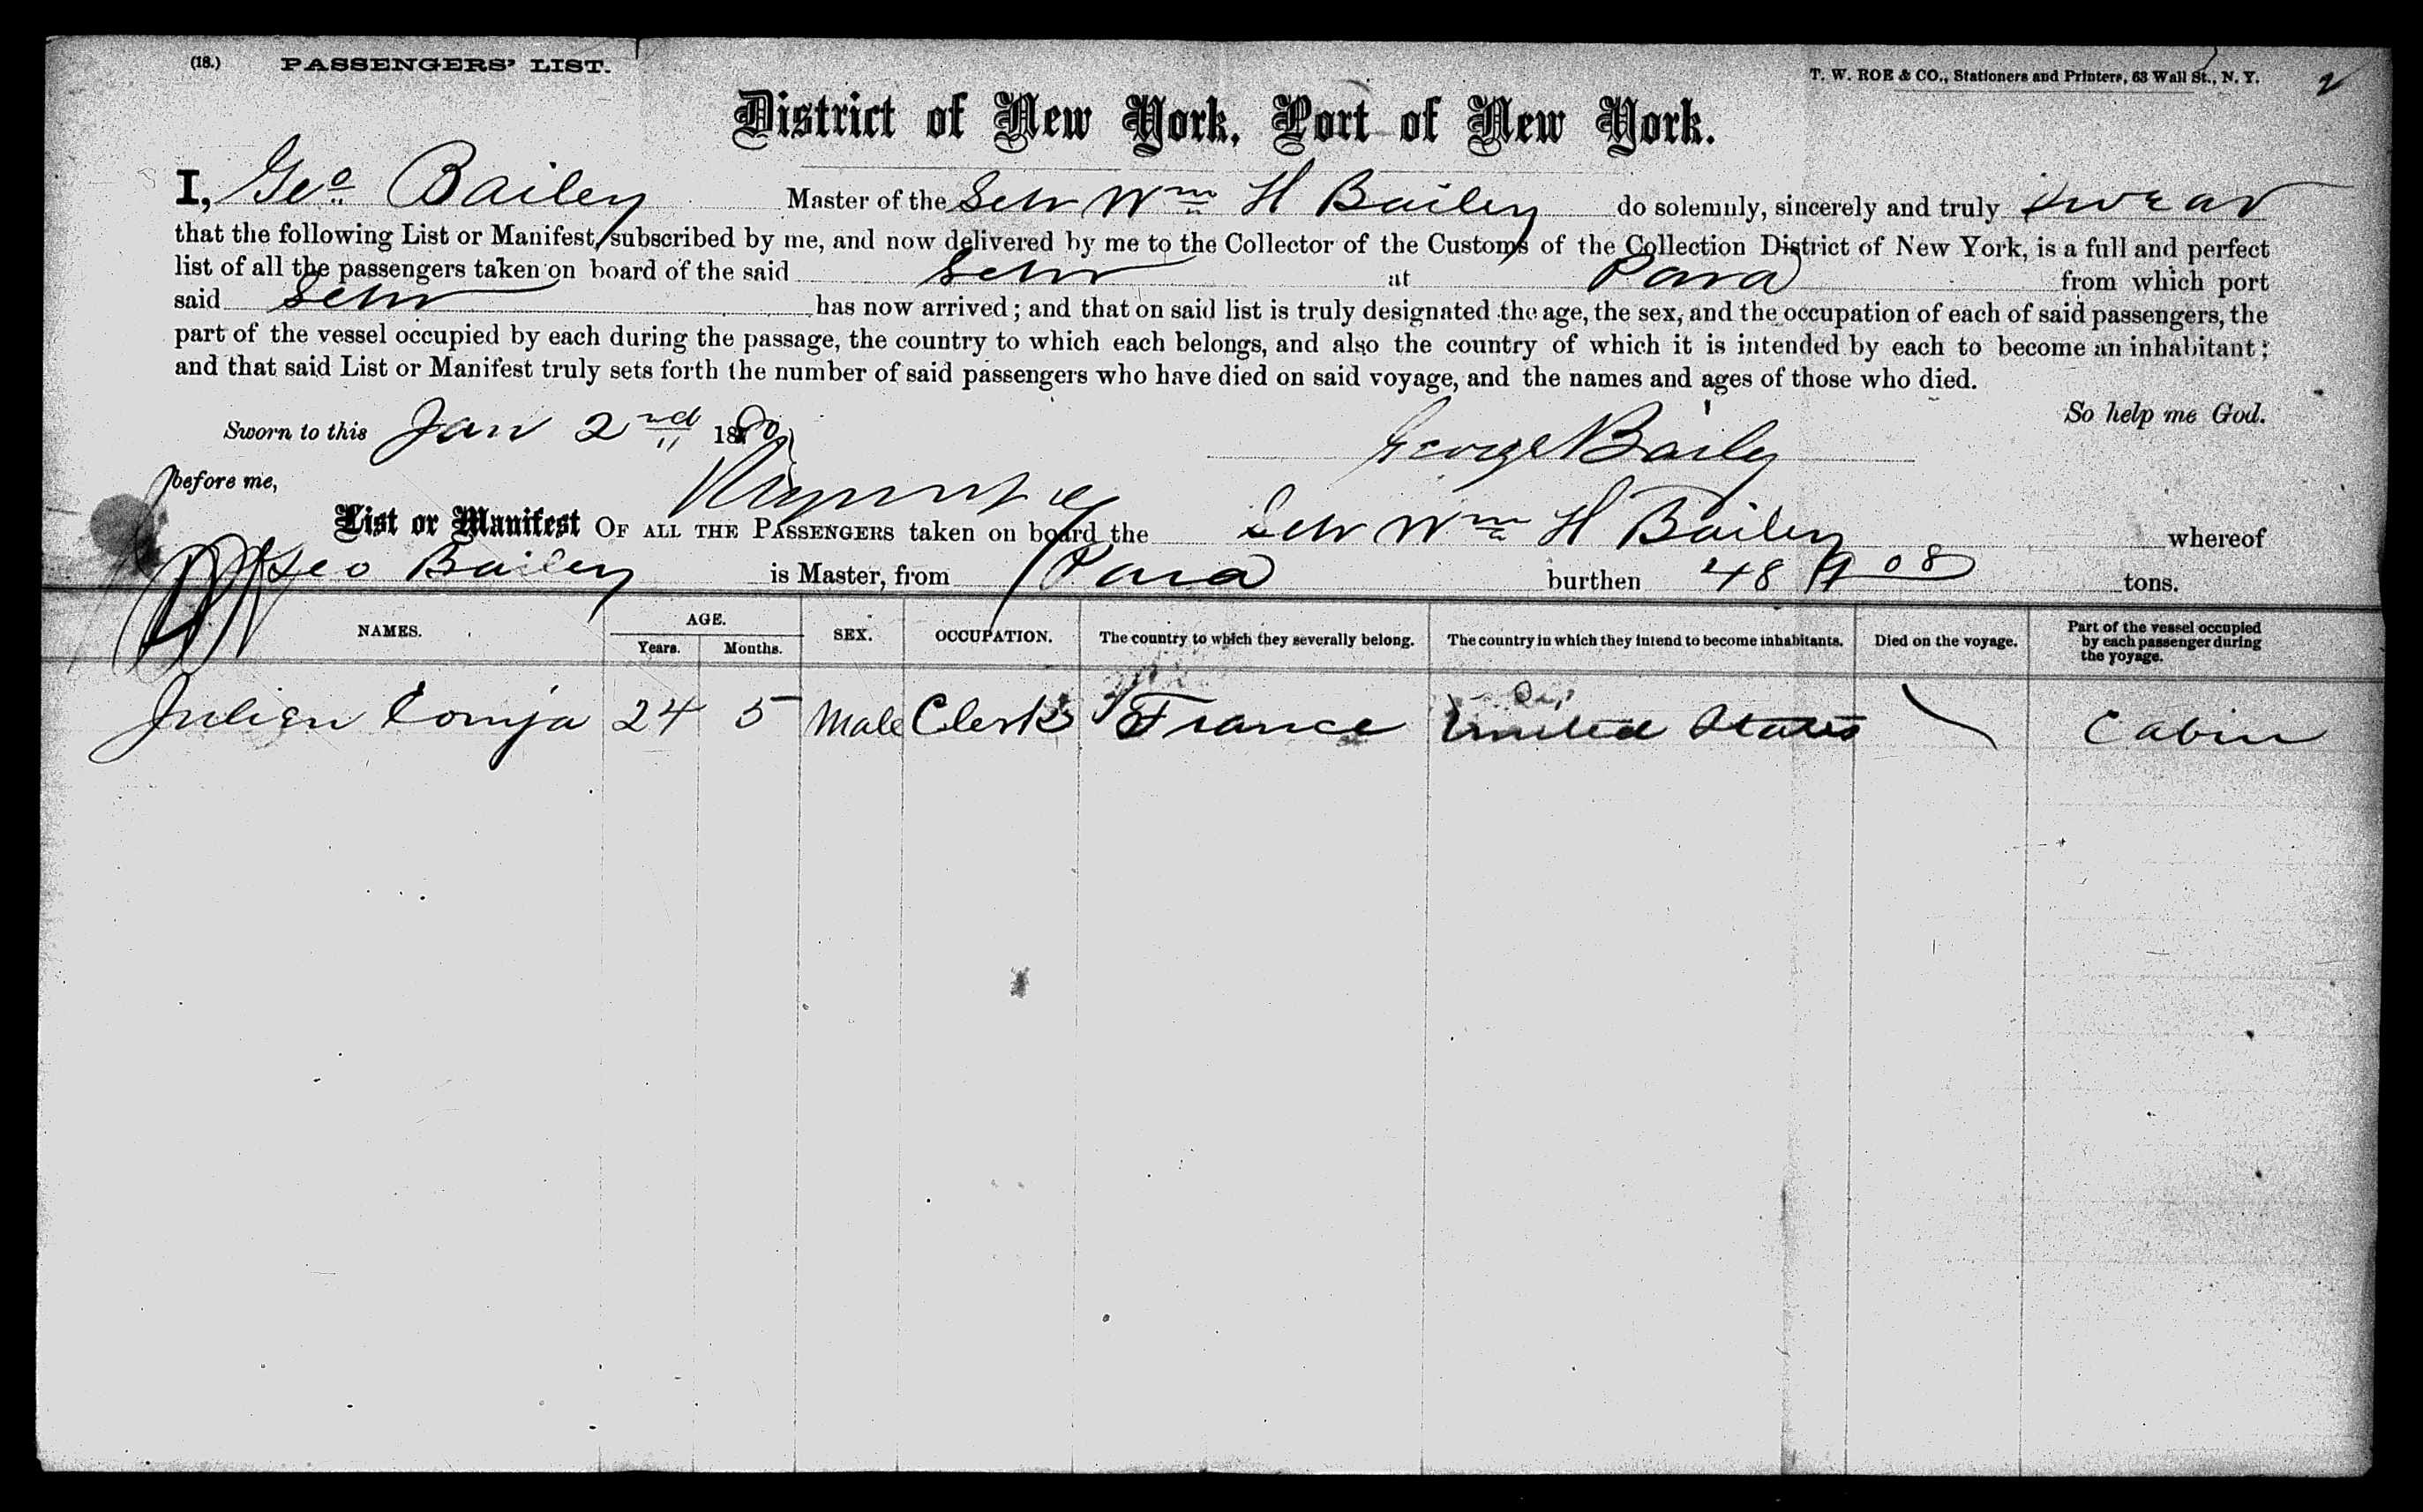 (18.) PASSENGERS' LIST. T. W. ROE & CO., Stationers and Printers, 63 Wall St., N. Y. 2
District of New York, Port of New York.
I, Geo Bailey Master of the Schr Wm H Bailey do solemnly, sincerely and truly swear
that the following List or Manifest, subscribed by me, and now delivered by me to the Collector of the Customs of the Collection District of New York, is a full and perfect
list of all the passengers taken on board of the said Schr at Para from which port
said Schr has now arrived; and that on said list is truly designated the age, the sex, and the occupation of each of said passengers, the
part of the vessel occupied by each during the passage, the country to which each belongs, and also the country of which it is intended by each to become an inhabitant;
and that said List or Manifest truly sets forth the number of said passengers who have died on said voyage, and the names and ages of those who died.
So help me God.
Sworn to this Jan 2nd 1880 George Baily
before me,
List or Manifest OF ALL THE PASSENGERS taken on board the Schr Wm H Bailey whereof
Geo Bailey is Master, from Para burthen tons.
NAMES. AGE. Years. Months. SEX. OCCUPATION. The country to which they severally belong. The country in which they intend to become inhabitants. Died on the voyage. Part of the vessel occupied by each passenger during the voyage.
Julien 24 5 Male Clerk France United States Cabin